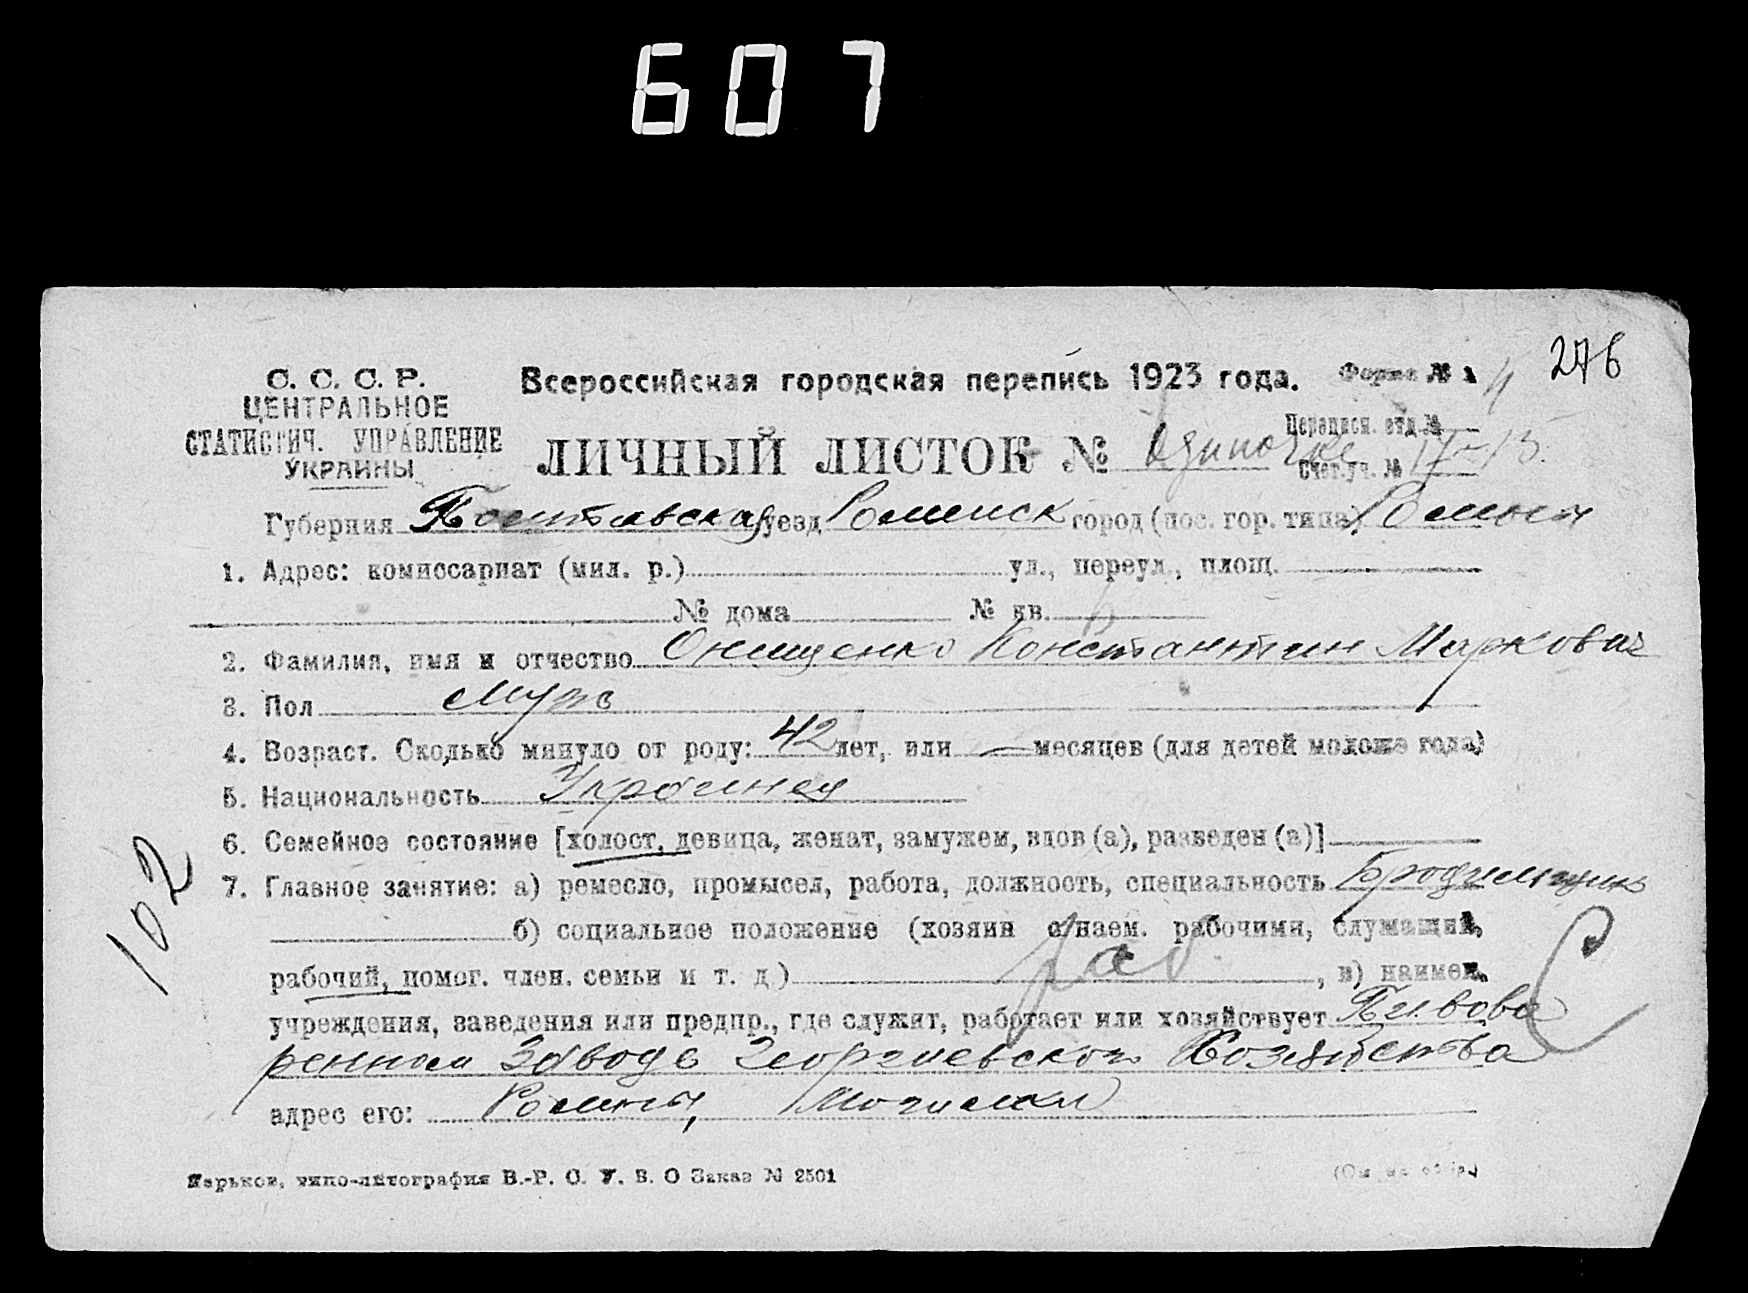 607
276
С. С. С. Р.
ЦЕНТРАЛЬНОЕ
СТАТИСТИЧ. УПРАВЛЕНИЕ
УКРАИНЫ
Всероссийская городская перепись 1923 года. Форма №
Переписн. отд. №
ЛИЧНЫЙ ЛИСТОК № Одиночке Счет. уч. № 15
Губерния Полтавская уезд Роменск город (пос. гор. типа) Ромны
1. Адрес: комиссариат (мил. р.) ул., переул., площ.
№ дома № кв.
2. Фамилия, имя и отчество Онищенко Константин Маркович
3. Пол Муж
4. Возраст. Сколько минуло от роду: 42 лет, или — месяцев (для детей моложе года)
5. Национальность Украинец
6. Семейное состояние [холост, девица, женат, замужем, вдов (а), разведен (а)]
7. Главное занятие: а) ремесло, промысел, работа, должность, специальность Бродильщик
б) социальное положение (хозяин с наем. рабочими, служащий,
рабочий, помог. член. семьи и т. д) раб. , в) наимен.
учреждения, заведения или предпр., где служит, работает или хозяйствует Пивова
ренном Заводе Георгиевском Хозяйства
адрес его: Ромны,
102
Харьков, типо-литография В.-Р. О. У. В. О Заказ № 2501